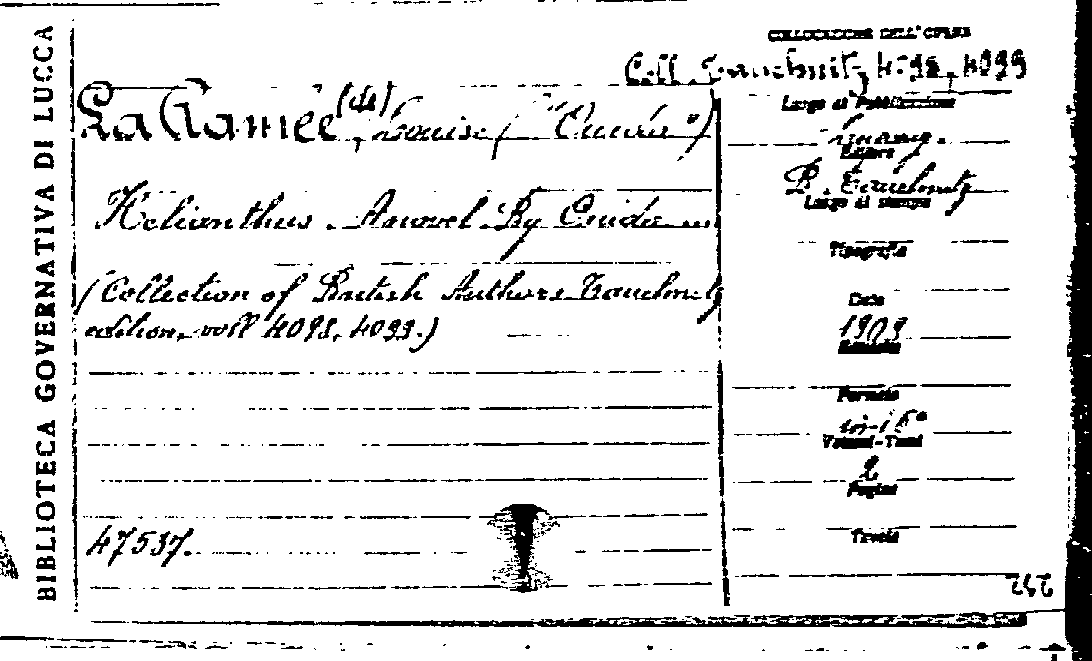 BIBLIOTECA GOVERNATIVA DI LUCCA
COLLOCAZIONE DELL'OPERA
Coll. Tauchnitz 4098, 4099
La Ramée (de), Louise ("Ouida")
Helianthus. A novel By Ouida
(Collection of British Authors Tauchnitz
edition, voll 4098, 4099.)
47537.
Luogo di Pubblicazione
Editore
B. Tauchnitz
Luogo di stampa
Tipografia
Data
1909
Formato
in-16°
Volumi-Tomi
2
Pagine
Tavole